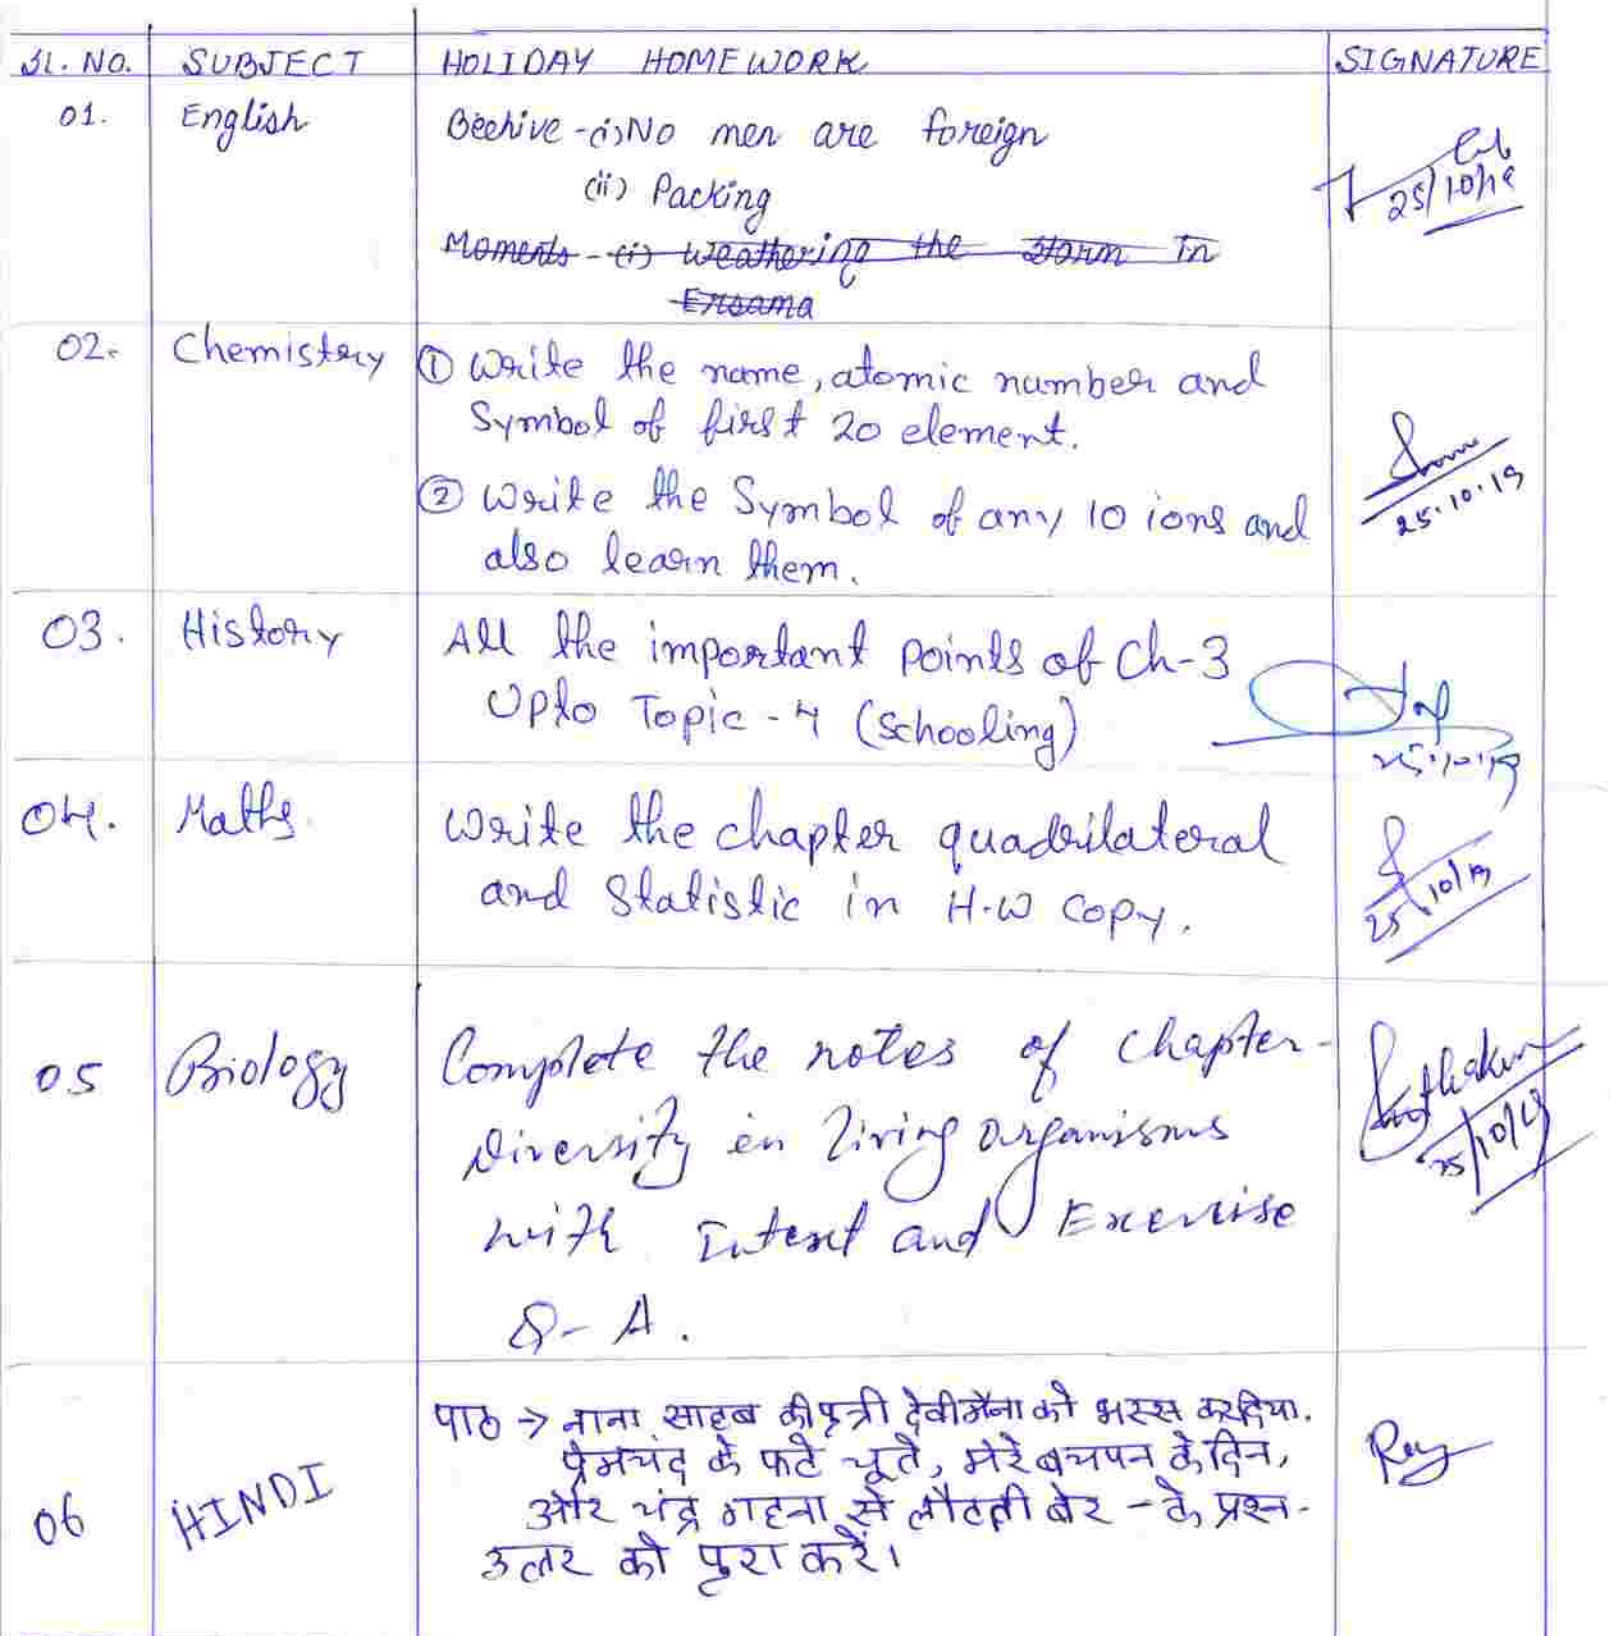 SL. NO. SUBJECT HOLIDAY HOMEWORK SIGNATURE
01. English Beehive - (i) No men are foreign
(ii) Packing
25/10/19
Moments - (i) Weathering the Storm in
Ersama
02. Chemistry ① Write the name, atomic number and
Symbol of first 20 element.
② Write the Symbol of any 10 ions and
also learn them.
25.10.19
03. History All the important points of Ch-3
Upto Topic - 4 (Schooling)
25.10.19
04. Maths Write the chapter quadrilateral
and Statistic in H.W Copy.
25/10/19
05 Biology Complete the notes of Chapter-
Diversity in Living organisms
25/10/19
with Intext and Exercise
Q- A.
06 HINDI पाठ → नाना साहब की पुत्री देवी मैना को भस्म कर दिया.
प्रेमचंद के फटे जूते, मेरे बचपन के दिन,
और चंद्र गहना से लौटती बेर - के प्रश्न-
उत्तर को पुरा करें।
Ray